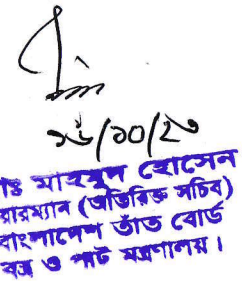 ১৬/১০/২৩
মোঃ মাহমুদ হোসেন
চেয়ারম্যান (অতিরিক্ত সচিব)
বাংলাদেশ তাঁত বোর্ড
বস্ত্র ও পাট মন্ত্রণালয়।